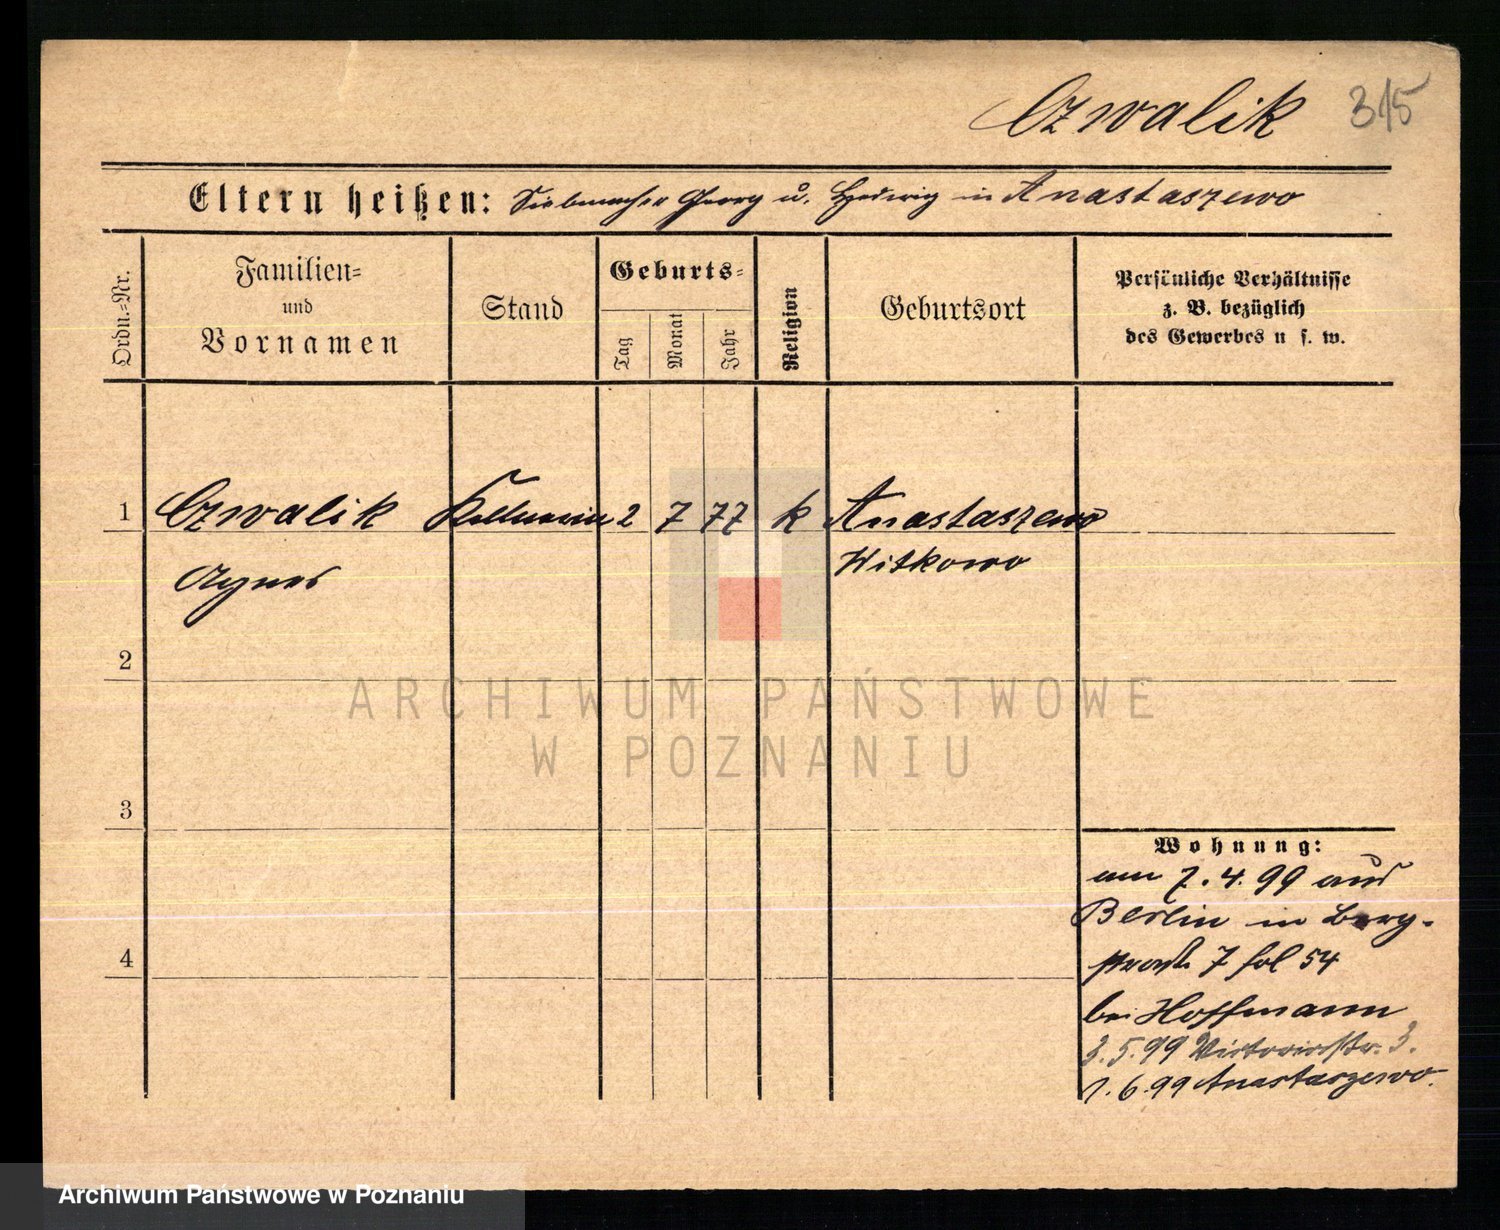 Czwalik 315
Eltern heißen: Siebmacher Georg u. Hedwig in Anastaszewo
Ordn.-Nr.
Familien-
und
Vornamen
Stand
Geburts-
Tag
Monat
Jahr
Religion
Geburtsort
Persönliche Verhältnisse
z. B. bezüglich
des Gewerbes u s. w.
1 Czwalik Kellnerin 2 7 77 k Anastaszewo
Agnes Witkowo
2
3
4
Wohnung:
am 7.4.99 aus
Berlin in Berg-
straße 7 fol 54
bei Hoffmann
3.5.99 Victoriastr. 3.
1.6.99 Anastaszewo.
ARCHIWUM PAŃSTWOWE
W POZNANIU
Archiwum Państwowe w Poznaniu